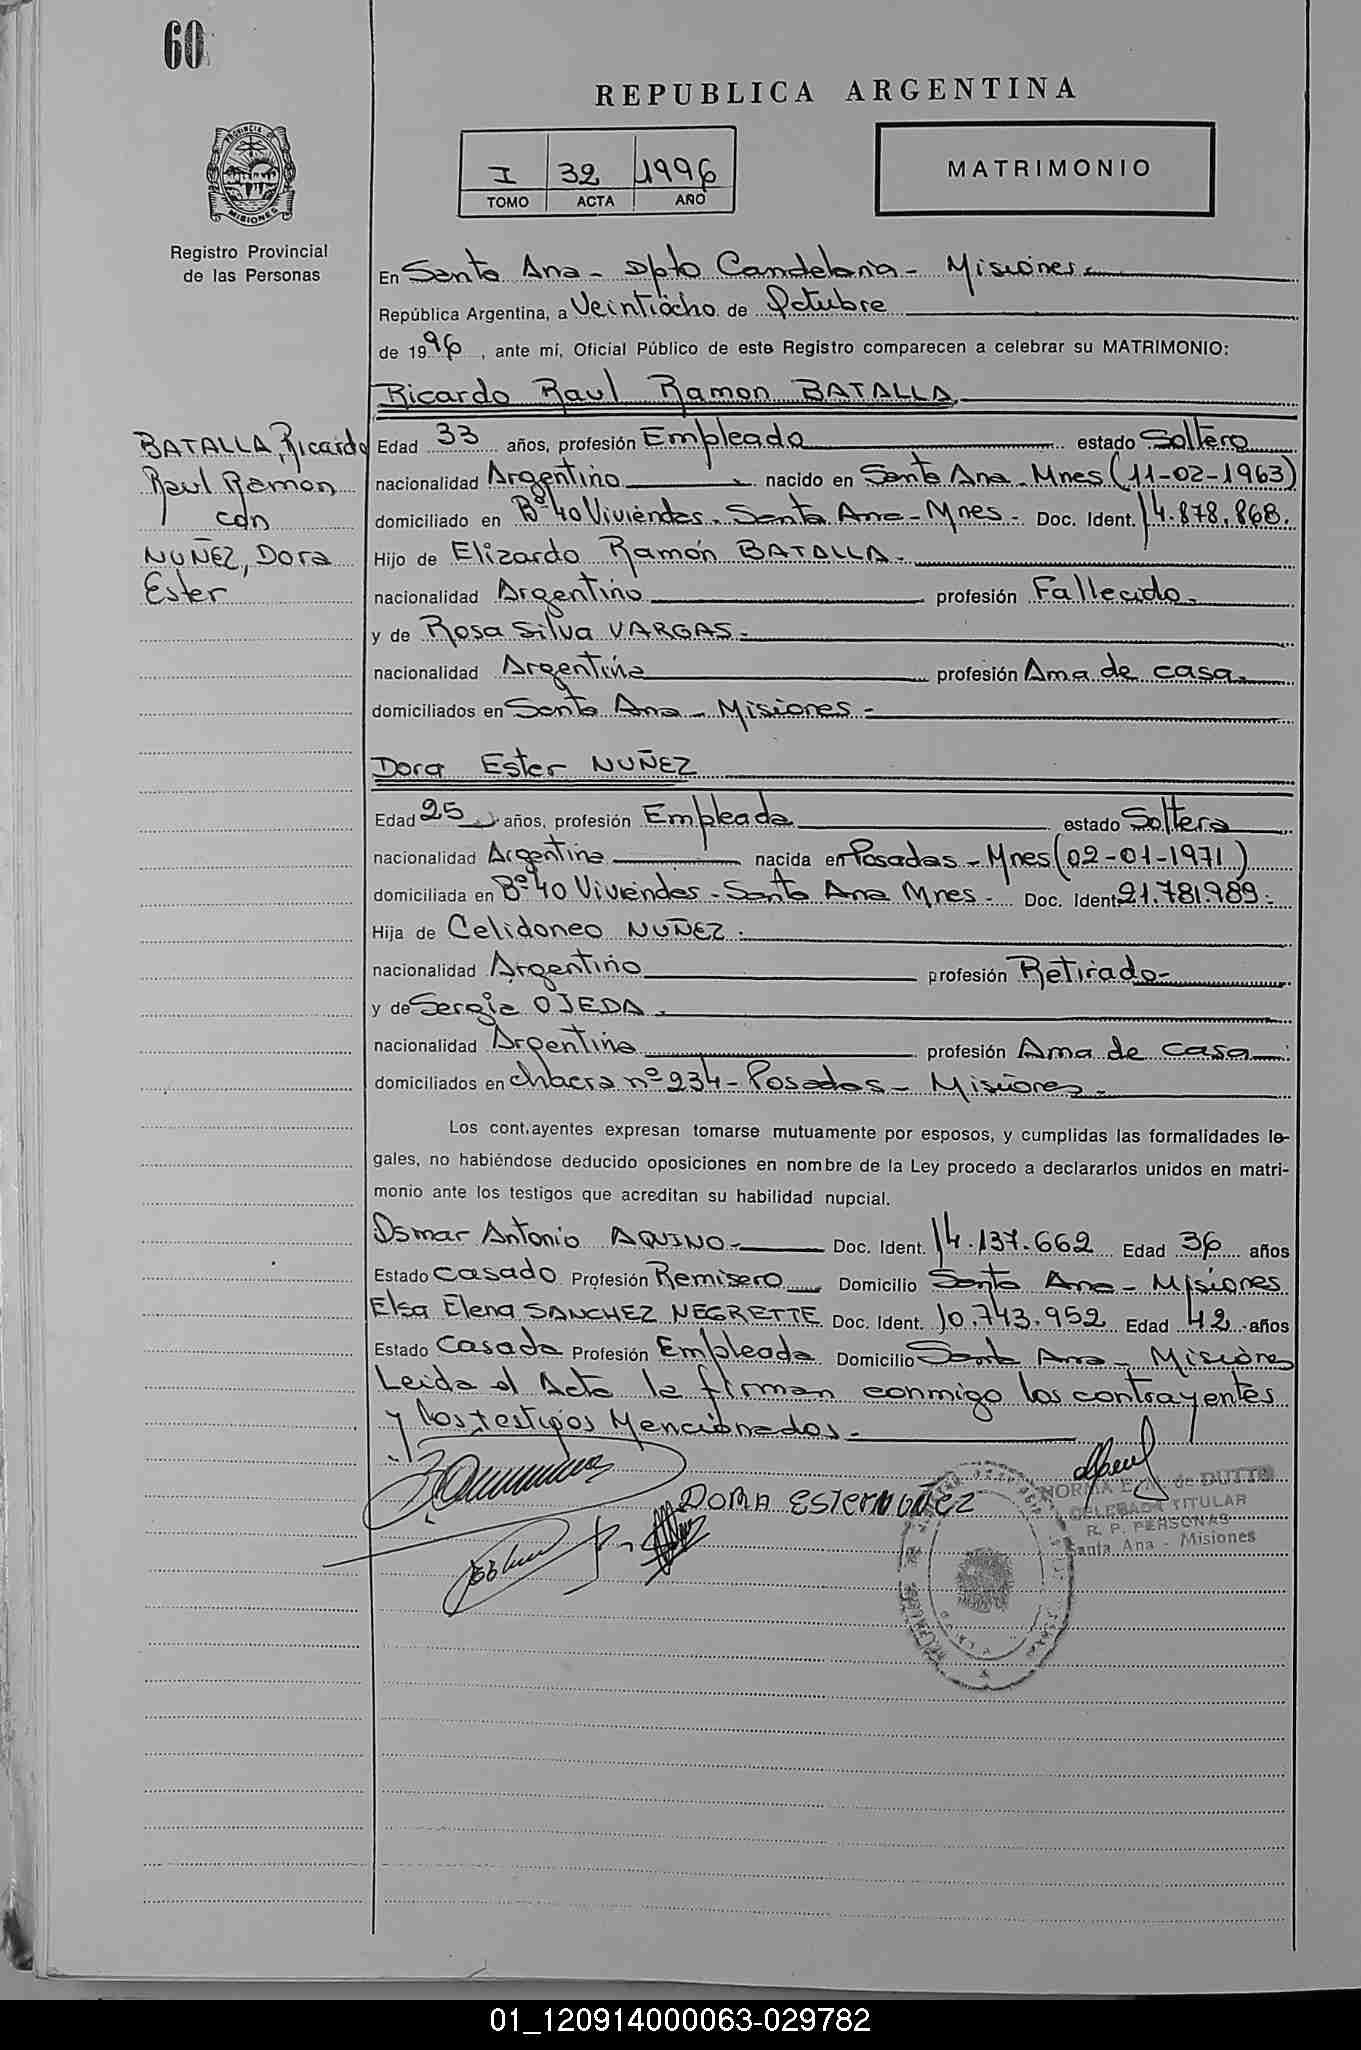 60
REPUBLICA ARGENTINA
I 32 1996
TOMO ACTA AÑO
MATRIMONIO
PROVINCIA DE MISIONES
Registro Provincial
de las Personas
En Santa Ana - Dpto Candelaria - Misiones
República Argentina, a Veintiocho de Octubre
de 1996, ante mí, Oficial Público de este Registro comparecen a celebrar su MATRIMONIO:
Ricardo Raul Ramon BATALLA
BATALLA, Ricardo
Raul Ramon
con
NUÑEZ, Dora
Ester
Edad 33 años, profesión Empleado estado Soltero
nacionalidad Argentino nacido en Santa Ana - Mnes (11-02-1963)
domiciliado en Bº 40 Viviendas - Santa Ana - Mnes - Doc. Ident. 14.878.868.
Hijo de Elizardo Ramón BATALLA -
nacionalidad Argentino profesión Fallecido -
y de Rosa Silva VARGAS -
nacionalidad Argentina profesión Ama de casa -
domiciliados en Santa Ana - Misiones -
Dora Ester NUÑEZ
Edad 25 años, profesión Empleada estado Soltera
nacionalidad Argentina nacida en Posadas - Mnes (02-01-1971)
domiciliada en Bº 40 Viviendas - Santa Ana Mnes - Doc. Ident. 21.781.989 -
Hija de Celidoneo NUÑEZ -
nacionalidad Argentino profesión Retirado -
y de Sergia OJEDA -
nacionalidad Argentina profesión Ama de casa
domiciliados en chacra nº 234 - Posadas - Misiones -
Los cont.ayentes expresan tomarse mutuamente por esposos, y cumplidas las formalidades le-
gales, no habiéndose deducido oposiciones en nombre de la Ley procedo a declararlos unidos en matri-
monio ante los testigos que acreditan su habilidad nupcial.
Osmar Antonio AQUINO - Doc. Ident. 14.137.662 Edad 36 años
Estado Casado Profesión Remisero Domicilio Santa Ana - Misiones
Elsa Elena SANCHEZ NEGRETTE Doc. Ident. 10.743.952 Edad 42 años
Estado Casada Profesión Empleada Domicilio Santa Ana - Misiones
Leida el Acta la firman conmigo los contrayentes
y los testigos Mencionados -
DORA ESTER NUÑEZ
NORMA de DUTTO
DELEGADA TITULAR
R. P. PERSONAS
Santa Ana - Misiones
01_120914000063-029782